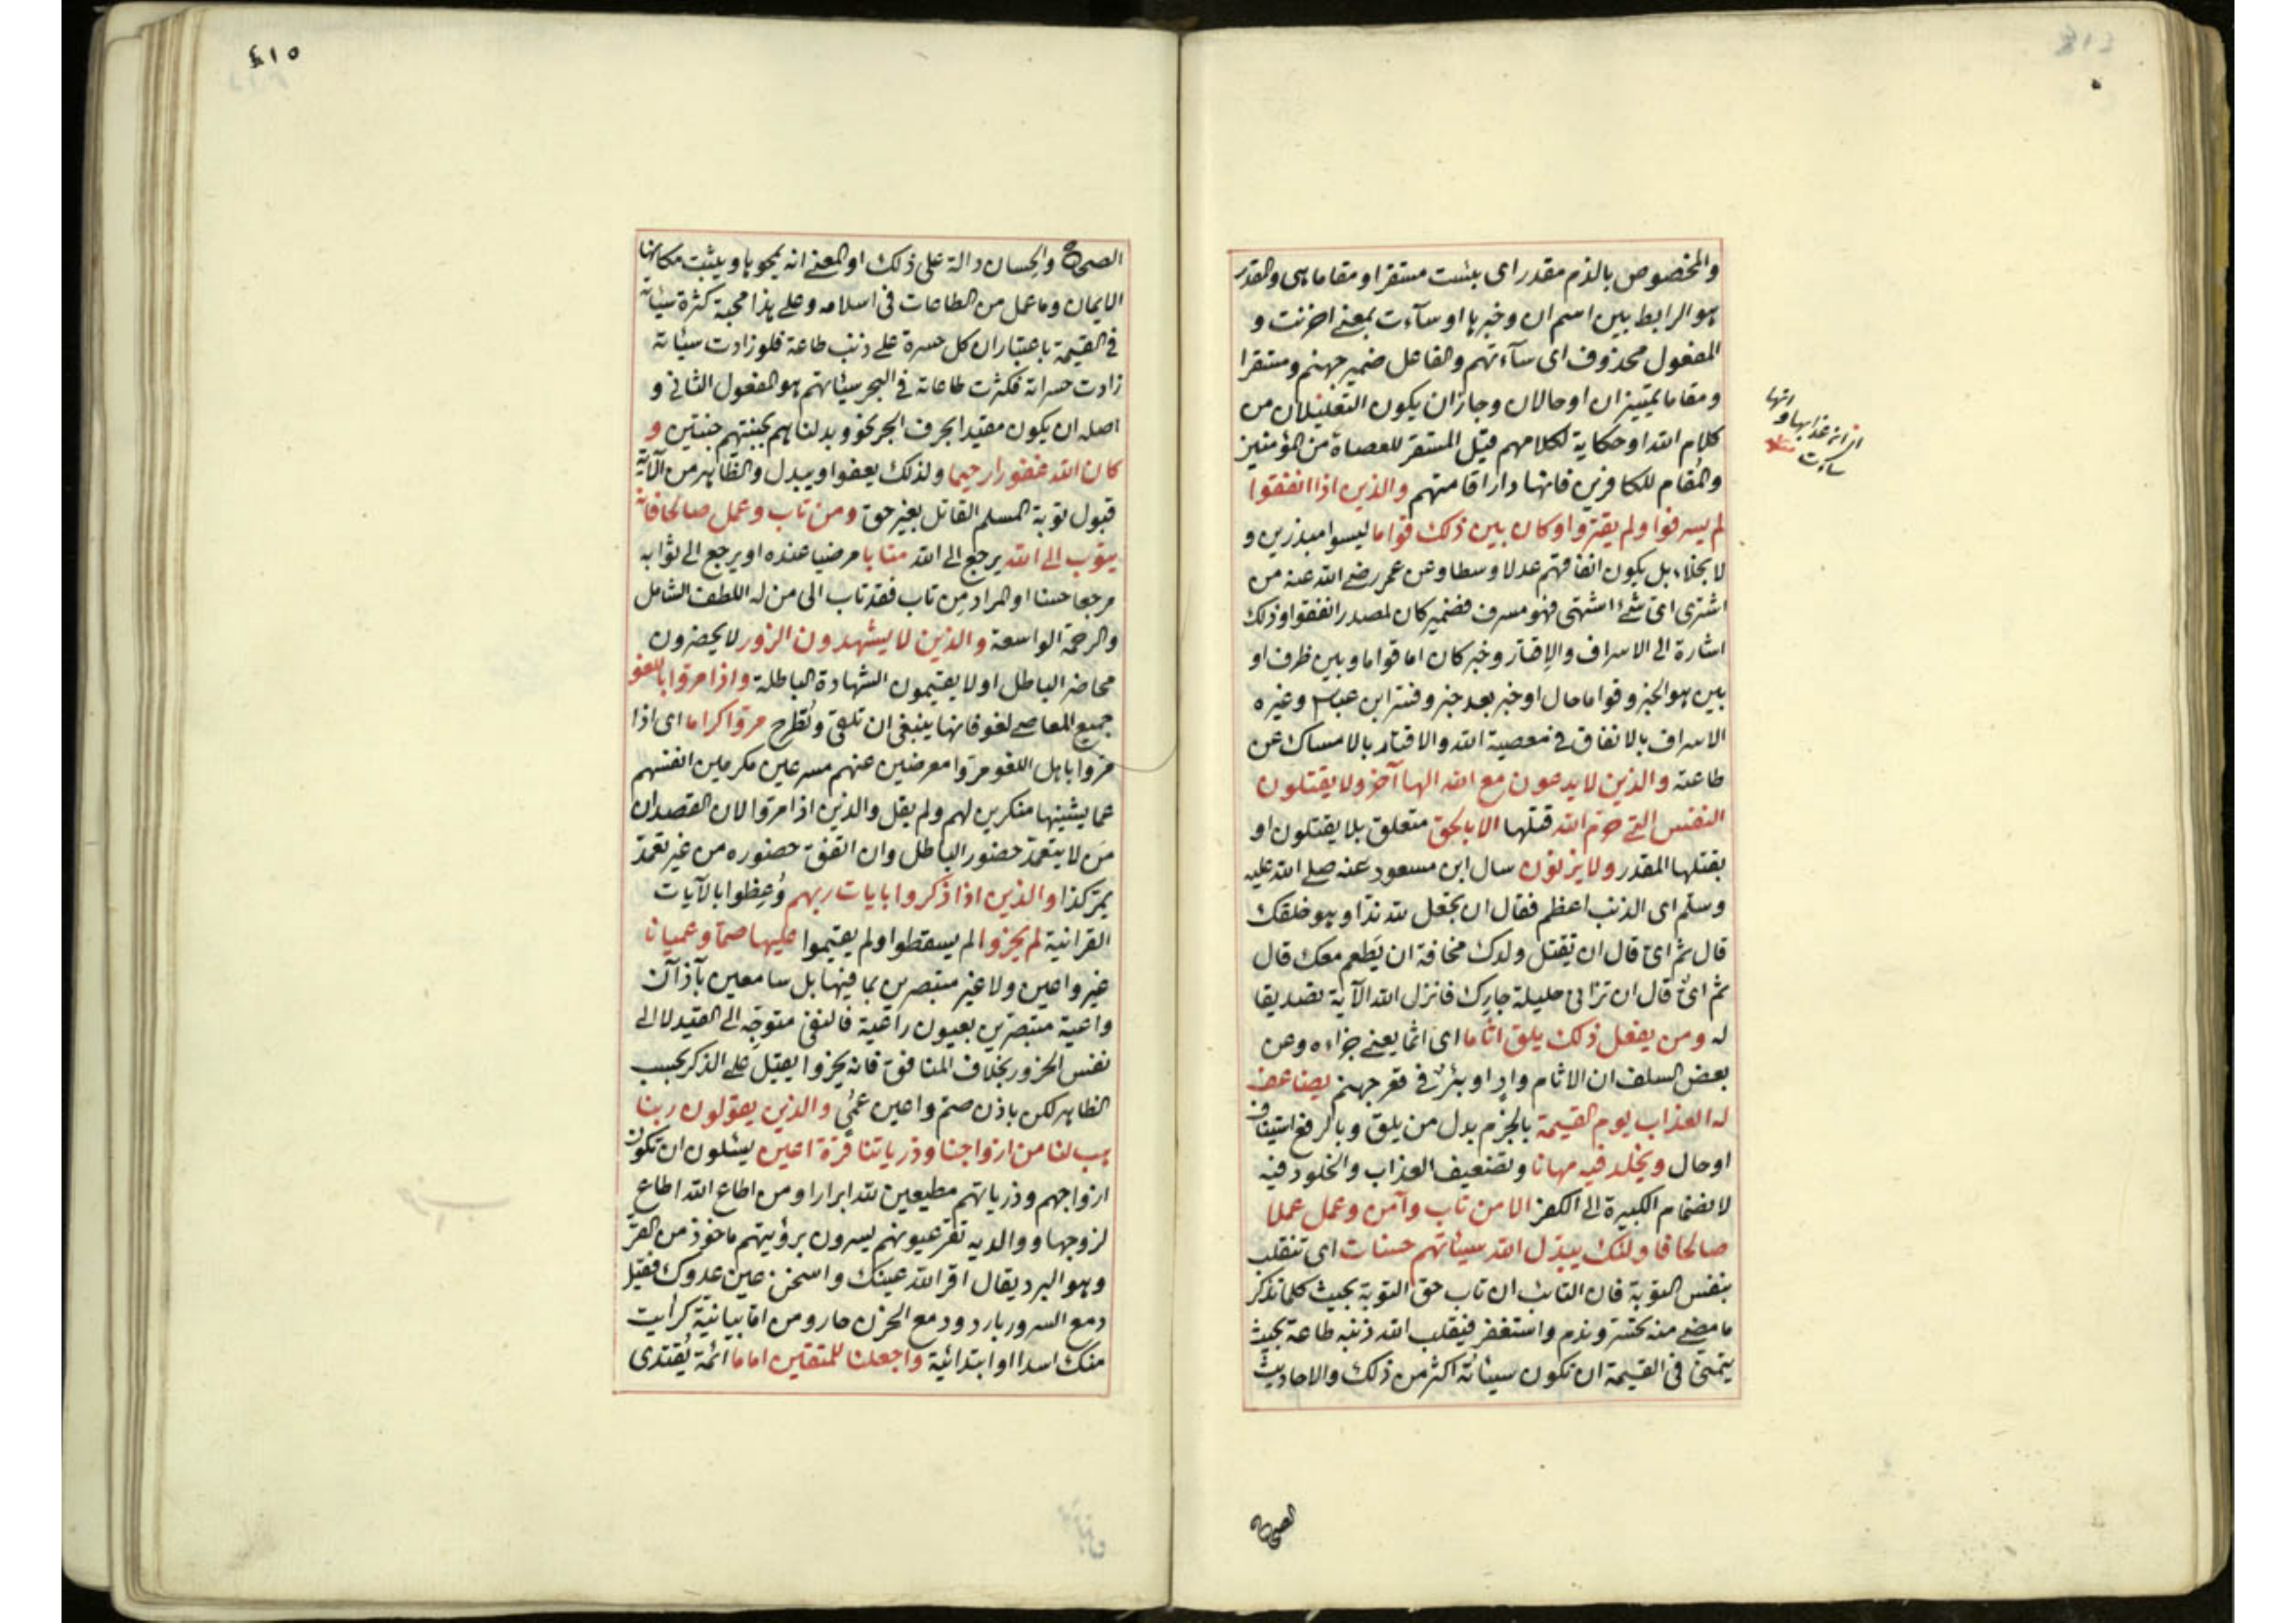 والمخصوص بالذم مقدر اى بئست مستقرا ومقاما هى والمقدر
هو الرابط بين اسم ان وخبرها او سآءت بمعنے احزنت و
المفعول محذوف اى سآءتهم والفاعل ضمير جهنم ومستقرا
ومقاما تمييزان او حالان وجاز ان يكون التعليلان من
كلام الله او حكاية لكلامهم قيل المستقر للعصاة من المؤمنين
والمُقام للكافرين فانها دار اقامتهم والذين اذا انفقوا
لم يسرفوا ولم يقتروا وكان بين ذلك قواما ليسوا مبذرين و
لا بخلاء بل يكون انفاقهم عدلا وسطا وعن عمر رضے الله عنه من
اشترى اىّ شئ اشتهى فهو مسرف فضمير كان لمصدر انفقوا وذلك
اشارة الى الاسراف والاقتار وخبر كان اما قواما وبين ظرف او
بين هو الخبر وقواما حال او خبر بعد خبر وفسّر ابن عباس وغيره
الاسراف بالانفاق فى معصية الله والاقتار بالامساك عن
طاعته والذين لا يدعون مع الله الها آخر ولا يقتلون
النفس التے حرّم الله قتلها الا بالحق متعلق بلا يقتلون او
بقتلها المقدر ولا يزنون سال ابن مسعود عنه صلے الله عليه
وسلم اى الذنب اعظم فقال ان تجعل لله ندّا وهو خلقك
قال ثم اىّ قال ان تقتل ولدك مخافة ان يَطعم معك قال
ثم اىّ قال ان تزانى حليلة جارك فانزل الله الآية تصديقا
له ومن يفعل ذلك يلق اثاما اى اثما يعنے جزاءه وعن
بعض السلف ان الاثام وادٍ او بئرٌ فى قعر جهنم يضاعف
له العذاب يوم القيمة بالجزم بدل من يلق وبالرفع استيناف
او حال ويخلد فيه مهانا وتضعيف العذاب والخلود فيه
لانضمام الكبيرة الى الكفر الا من تاب وآمن وعمل عملا
صالحا فاولئك يبدّل الله سيئاتهم حسنات اى تنقلب
بنفس التوبة فان التائب ان تاب حق التوبة بحيث كلما تذكر
ما مضے منه تحسّر وندم واستغفر فينقلب الله ذنبه طاعة بحيث
يتمنى فى القيمة ان تكون سيئاته اكثر من ذلك والاحاديث
انها
ساءت
الصحاح
٤١٥
الصحاح والحسان دالة على ذلك او المعنے انه يمحوها ويثبت مكانها
الايمان وما عمل من الطاعات فى اسلامه وعلے هذا محبة كثرة سيئاته
فى القيمة باعتبار ان كل حسرة علے ذنب طاعة فلو زادت سيئاته
زادت حسراته فكثرت طاعاته فى البحر سيئاتهم هو المفعول الثانى و
اصله ان يكون مقيد ابحرف الجر نحو وبدلناهم بجنتيهم جنتين و
كان الله غفورا رحيما ولذلك يعفو او يبدل والظاهر من الآية
قبول توبة المسلم القاتل بغير حق ومن تاب وعمل صالحا فانه
يتوب الى الله يرجع الى الله متابا مرضيا عنده او يرجع الى ثوابه
مرجعا حسنا او المراد مِن تاب فقد تاب الى من له اللطف الشامل
والرحمة الواسعة والذين لا يشهدون الزور لا يحضرون
محاضر الباطل او لا يقيمون الشهادة الباطلة واذا مرّوا باللغو
جميع المعاصے لغو فانها ينبغى ان تلقى وتُطرح مرّوا كراما اى اذا
مرّوا باهل اللغو مرّوا معرضين عنهم مسرعين مكرمين انفسهم
عما يشينها منكرين لهم ولم يقل والذين اذا مرّوا لان القصد ان
مَن لا يتعمّد حضور الباطل وان اتفق حضوره من غير تعمّد
يمرّ كذا والذين اذا ذكروا بايات ربهم وُعِظوا بالآيات
القرانية لم يخرّوا لم يسقطوا ولم يقيموا عليها صمّا وعميانا
غير واعين ولا غير متبصرين بما فيها بل سامعين بآذان
واعية متبصرين بعيون راعية فالنفى متوجّه الى القيد لا الى
نفس الخرور بخلاف المنافق فانه يخرّ و يقبل علے الذكر بحسب
الظاهر لكن باذن صمّ واعين عُمىٍ والذين يقولون ربنا
هب لنا من ازواجنا وذرياتنا قرّة اعين يسئلون ان تكون
ازواجهم وذرياتهم مطيعين لله ابرارا ومن اطاع الله اطاع
لزوجها ووالديه تقرّ عيونهم يسرون برؤيتهم ماخوذ من القرّ
وهو البرد يقال اقرّ الله عينك واسخن عين عدوك فقيل
دمع السرور بارد ودمع الحزن حار ومن اما بيانية كرأيت
منك اسدا او ابتدائية واجعلنا للمتقين اماما ائمة يُقتدى